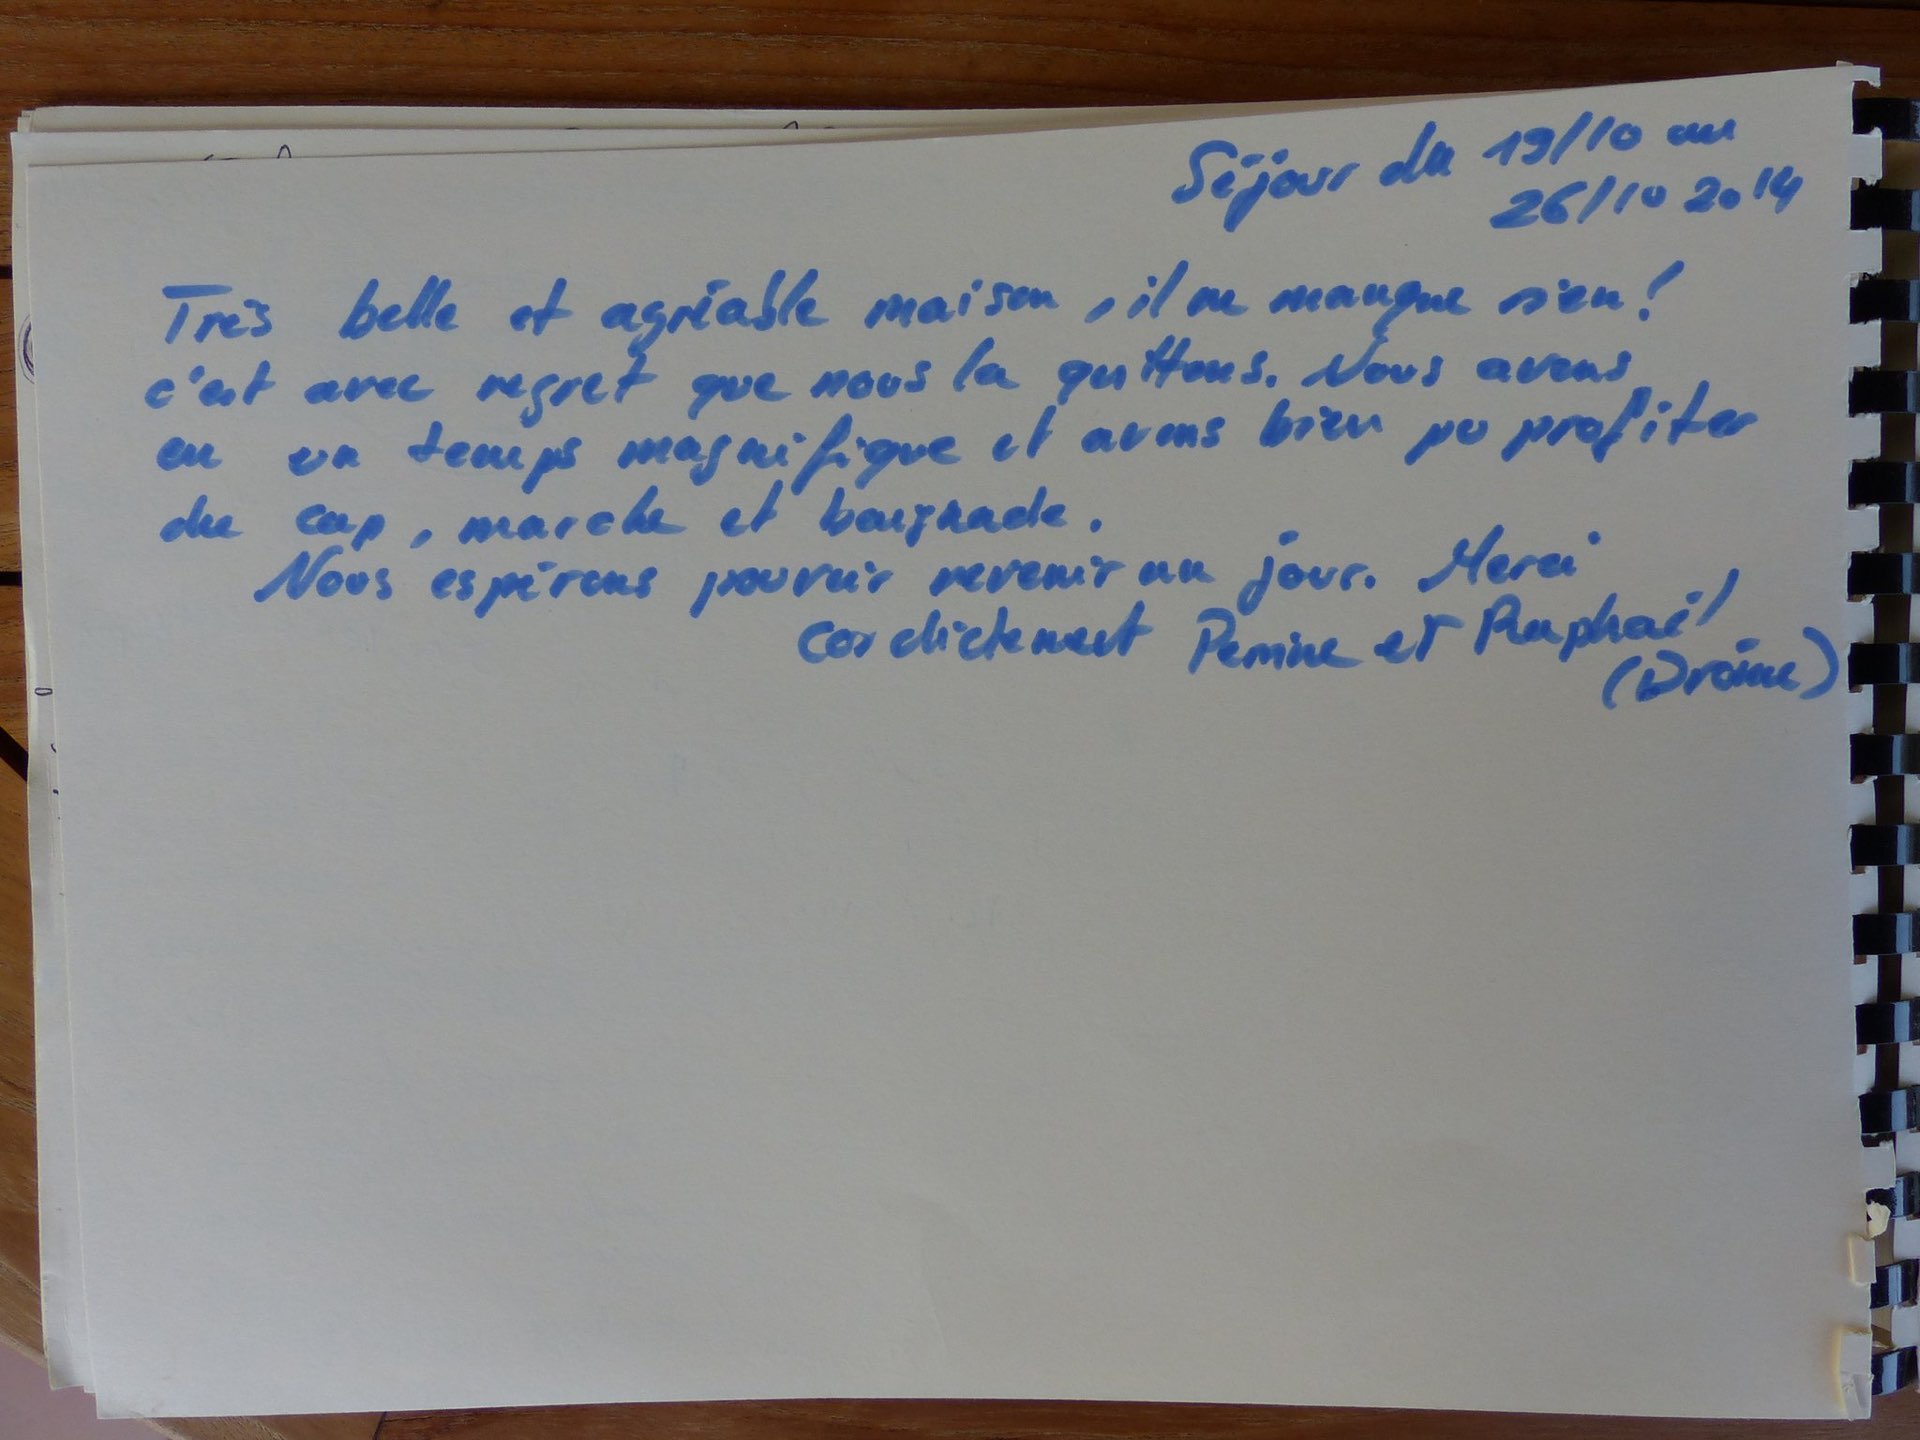 Séjour du 19/10 au
26/10 2014
Très belle et agréable maison, il ne manque rien!
c'est avec regret que nous la quittons. Nous avons
eu un temps magnifique et avons bien pu profiter
du cap, marche et baignade.
Nous espérons pouvoir revenir un jour. Merci
Cordialement Perrine et Raphaël
(Drôme)